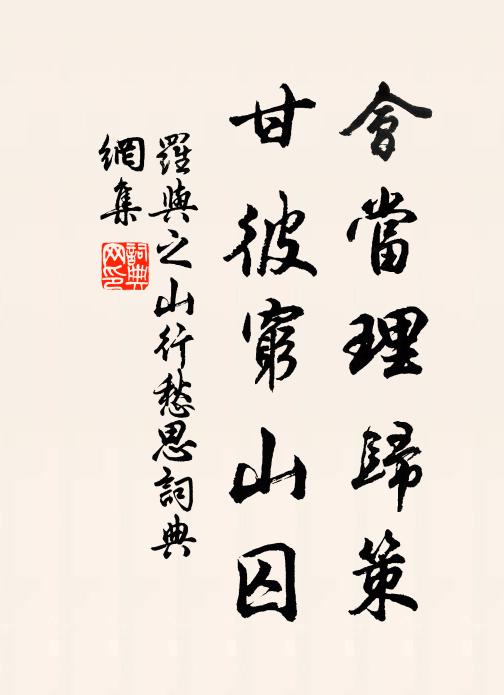 會當理歸策
甘彼窮山囚
羅與之山行愁思詞典
網集
詞典
网印